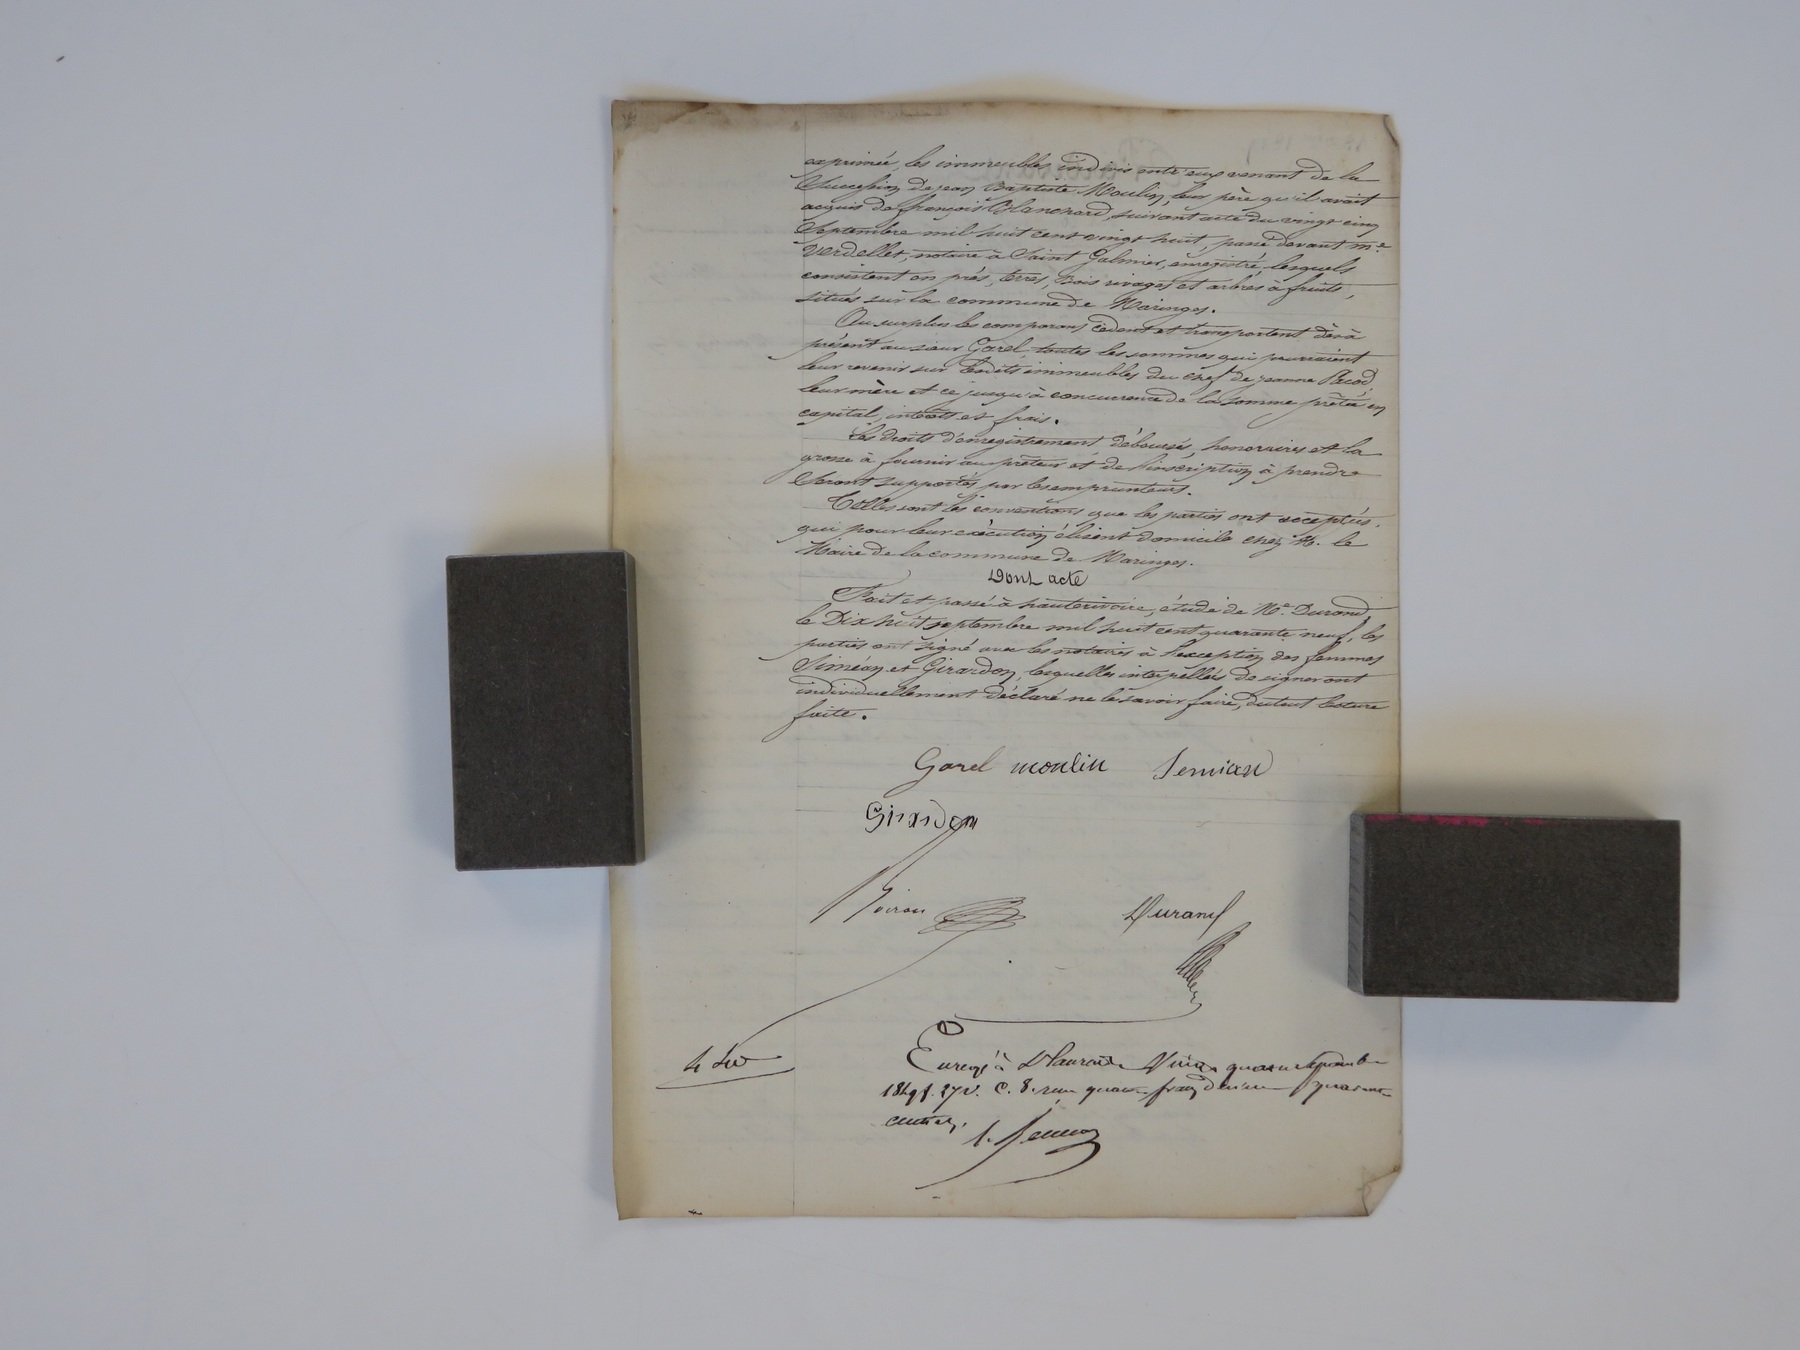 exprimée, les immeubles indivis entre eux venant de la
Succession de jean Baptiste Moulin, leur père qu'il avait
acquis de françois Blanchard, suivant acte du vingt cinq
Septembre mil huit cent vingt huit, passé devant me
Verdellet, notaire à Saint Galmier, enregistré lesquels
consistent en prés, terres, bois rivages et arbres à fruits,
situés sur la commune de Maringes.
Au surplus les comparans cèdent et transportent dès à
présent au sieur Garel toutes les sommes qui pourraient
leur revenir sur lesdits immeubles du chef de jeanne
leur mère et ce jusqu'à concurrence de la somme prêtée en
capital, intérêts et frais.
Les droits d'enregistrement déboursés, honoraires et la
grosse à fournir au prêteur et de l'inscription à prendre
Seront supportés par les emprunteurs.
Telles sont les conventions que les parties ont acceptées,
qui pour leur exécution élisent domicile chez M. le
Maire de la commune de Maringes.
Dont acte
Fait et passé à hauterivoire, étude de Me Durand,
le Dix huit septembre mil huit cent quarante neuf, les
parties ont signé avec les notaires à l'exception des femmes
Siméan et Girardon, lesquelles interpellées de signer ont
individuellement déclaré ne le savoir faire, du tout lecture
faite.
Garel moulin Semian
Girardon
Durand
à St Laurent de septembre
1849 f. 27 v. C. 8. reçu quatre francs quarante
centimes.